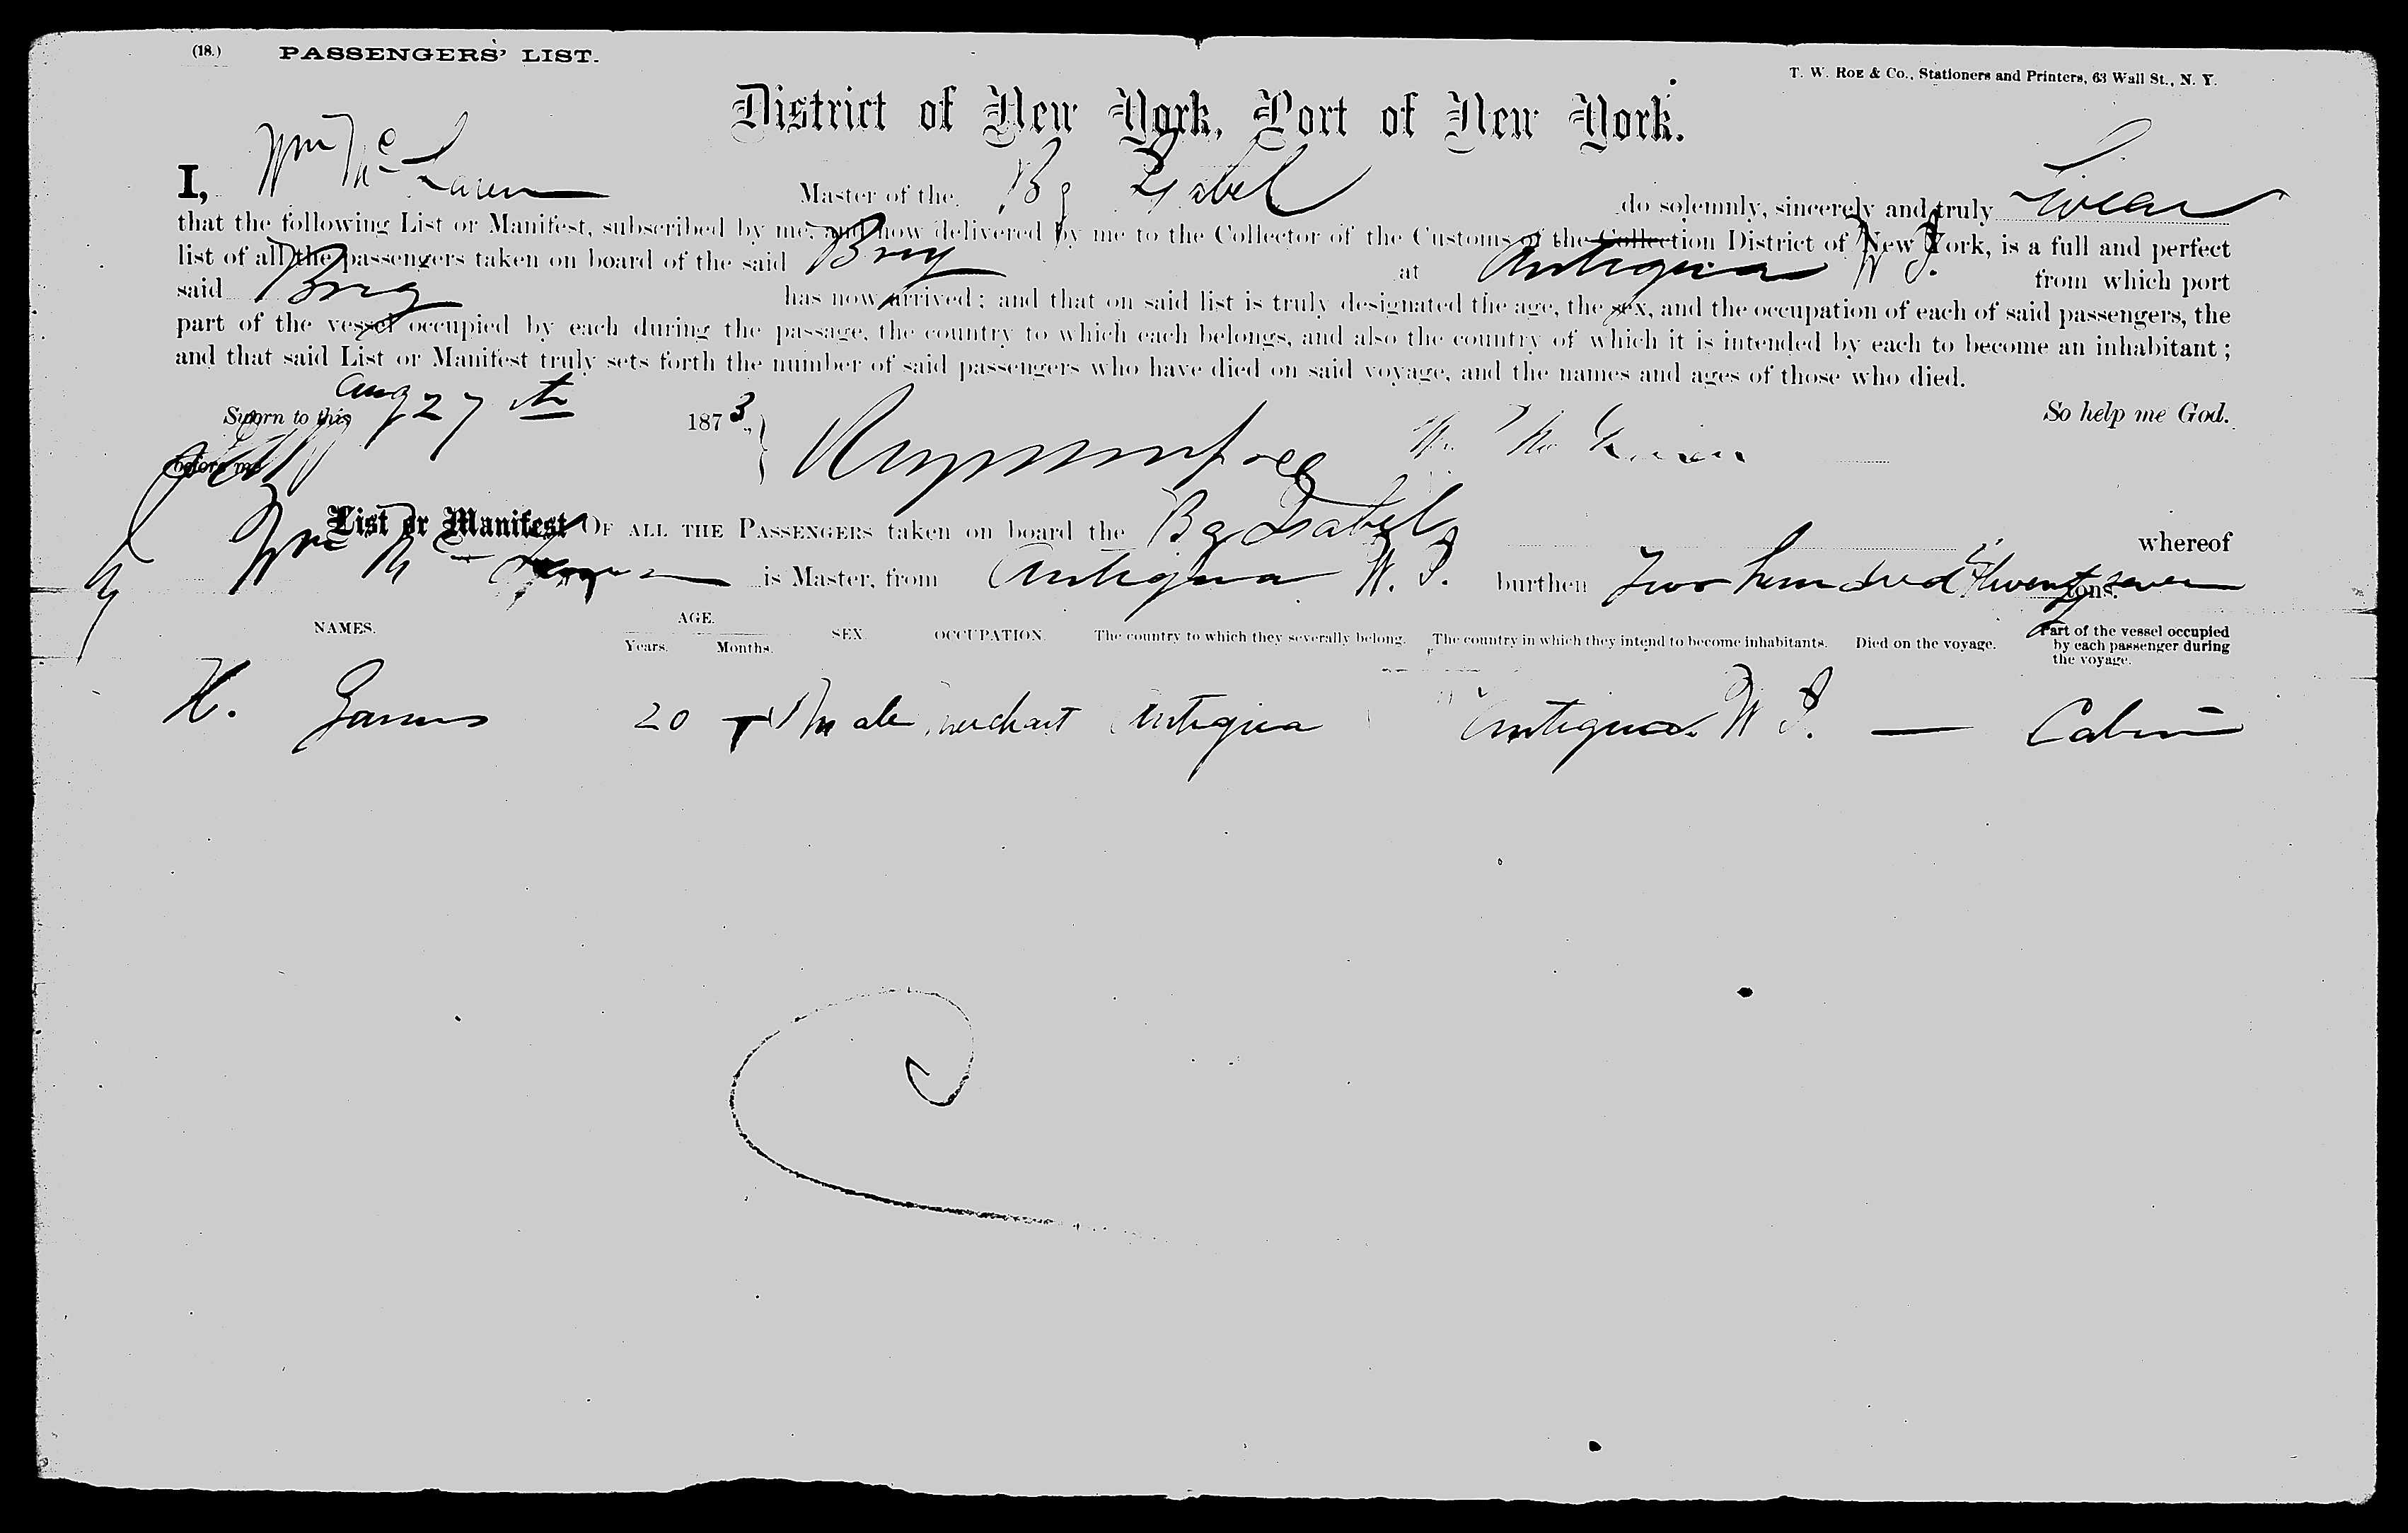 (18.) PASSENGERS' LIST.
T. W. ROE & Co., Stationers and Printers, 63 Wall St., N. Y.
District of New York, Port of New York.
I, Wm McLaren Master of the Bg Isabel do solemnly, sincerely and truly swear
that the following List or Manifest, subscribed by me, and now delivered by me to the Collector of the Customs of the Collection District of New York, is a full and perfect
list of all the passengers taken on board of the said Brig at Antigua W I. from which port
said Brig has now arrived; and that on said list is truly designated the age, the sex, and the occupation of each of said passengers, the
part of the vessel occupied by each during the passage, the country to which each belongs, and also the country of which it is intended by each to become an inhabitant;
and that said List or Manifest truly sets forth the number of said passengers who have died on said voyage, and the names and ages of those who died.
Sworn to this Aug 27th 1873, So help me God.
before me Wm McLaren
List or Manifest OF ALL THE PASSENGERS taken on board the Bg Isabel whereof
Wm Mc is Master, from Antigua W. I. burthen Two hundred & twenty seven tons.
NAMES. AGE. Years. Months. SEX OCCUPATION. The country to which they severally belong. The country in which they intend to become inhabitants. Died on the voyage. Part of the vessel occupied by each passenger during the voyage.
H. 20 Male Merchant Antigua Antigua W I. — Cabin